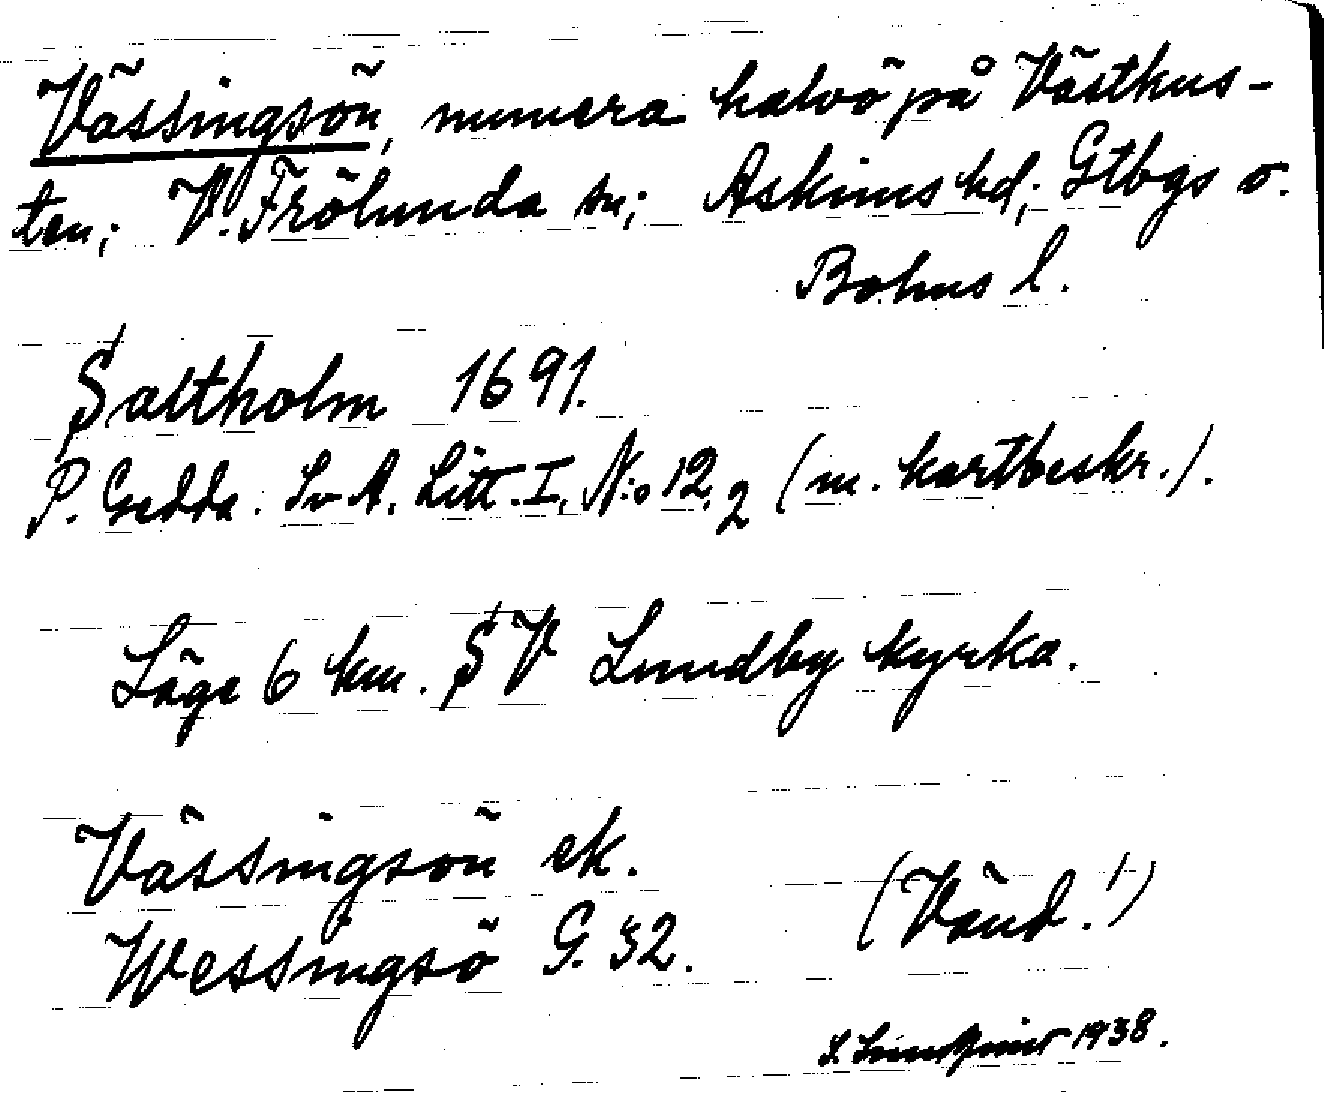 Vässingsön, numera halvö på Västkus-
ten; V. Frölunda sn; Askims hd; Gtbgs o.
Bohus l.
Saltholm 1691.
P. Gedda. Sv A. Litt. I, N:o 12, 2 (m. kartbeskr.).
Läge 6 km. SV Lundby kyrka.
Vässingsön ek.
Wessingsö G. 32.
(Vänd!)
S. Lundqvist 1938.